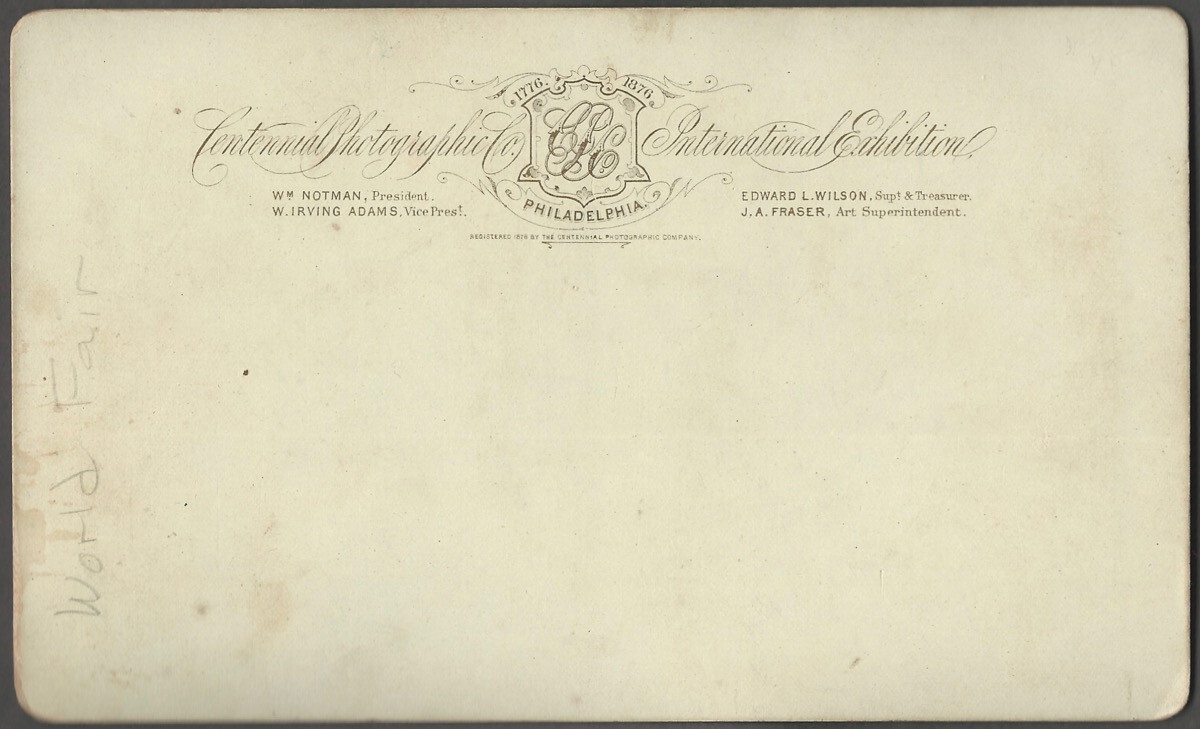 1776. 1876.
Centennial Photographic Co. CPC International Exhibition.
WM NOTMAN, President.
W. IRVING ADAMS, Vice Prest.
EDWARD L. WILSON, Supt & Treasurer.
J. A. FRASER, Art Superintendent.
PHILADELPHIA.
REGISTERED 1876 BY THE CENTENNIAL PHOTOGRAPHIC COMPANY.
World Fair